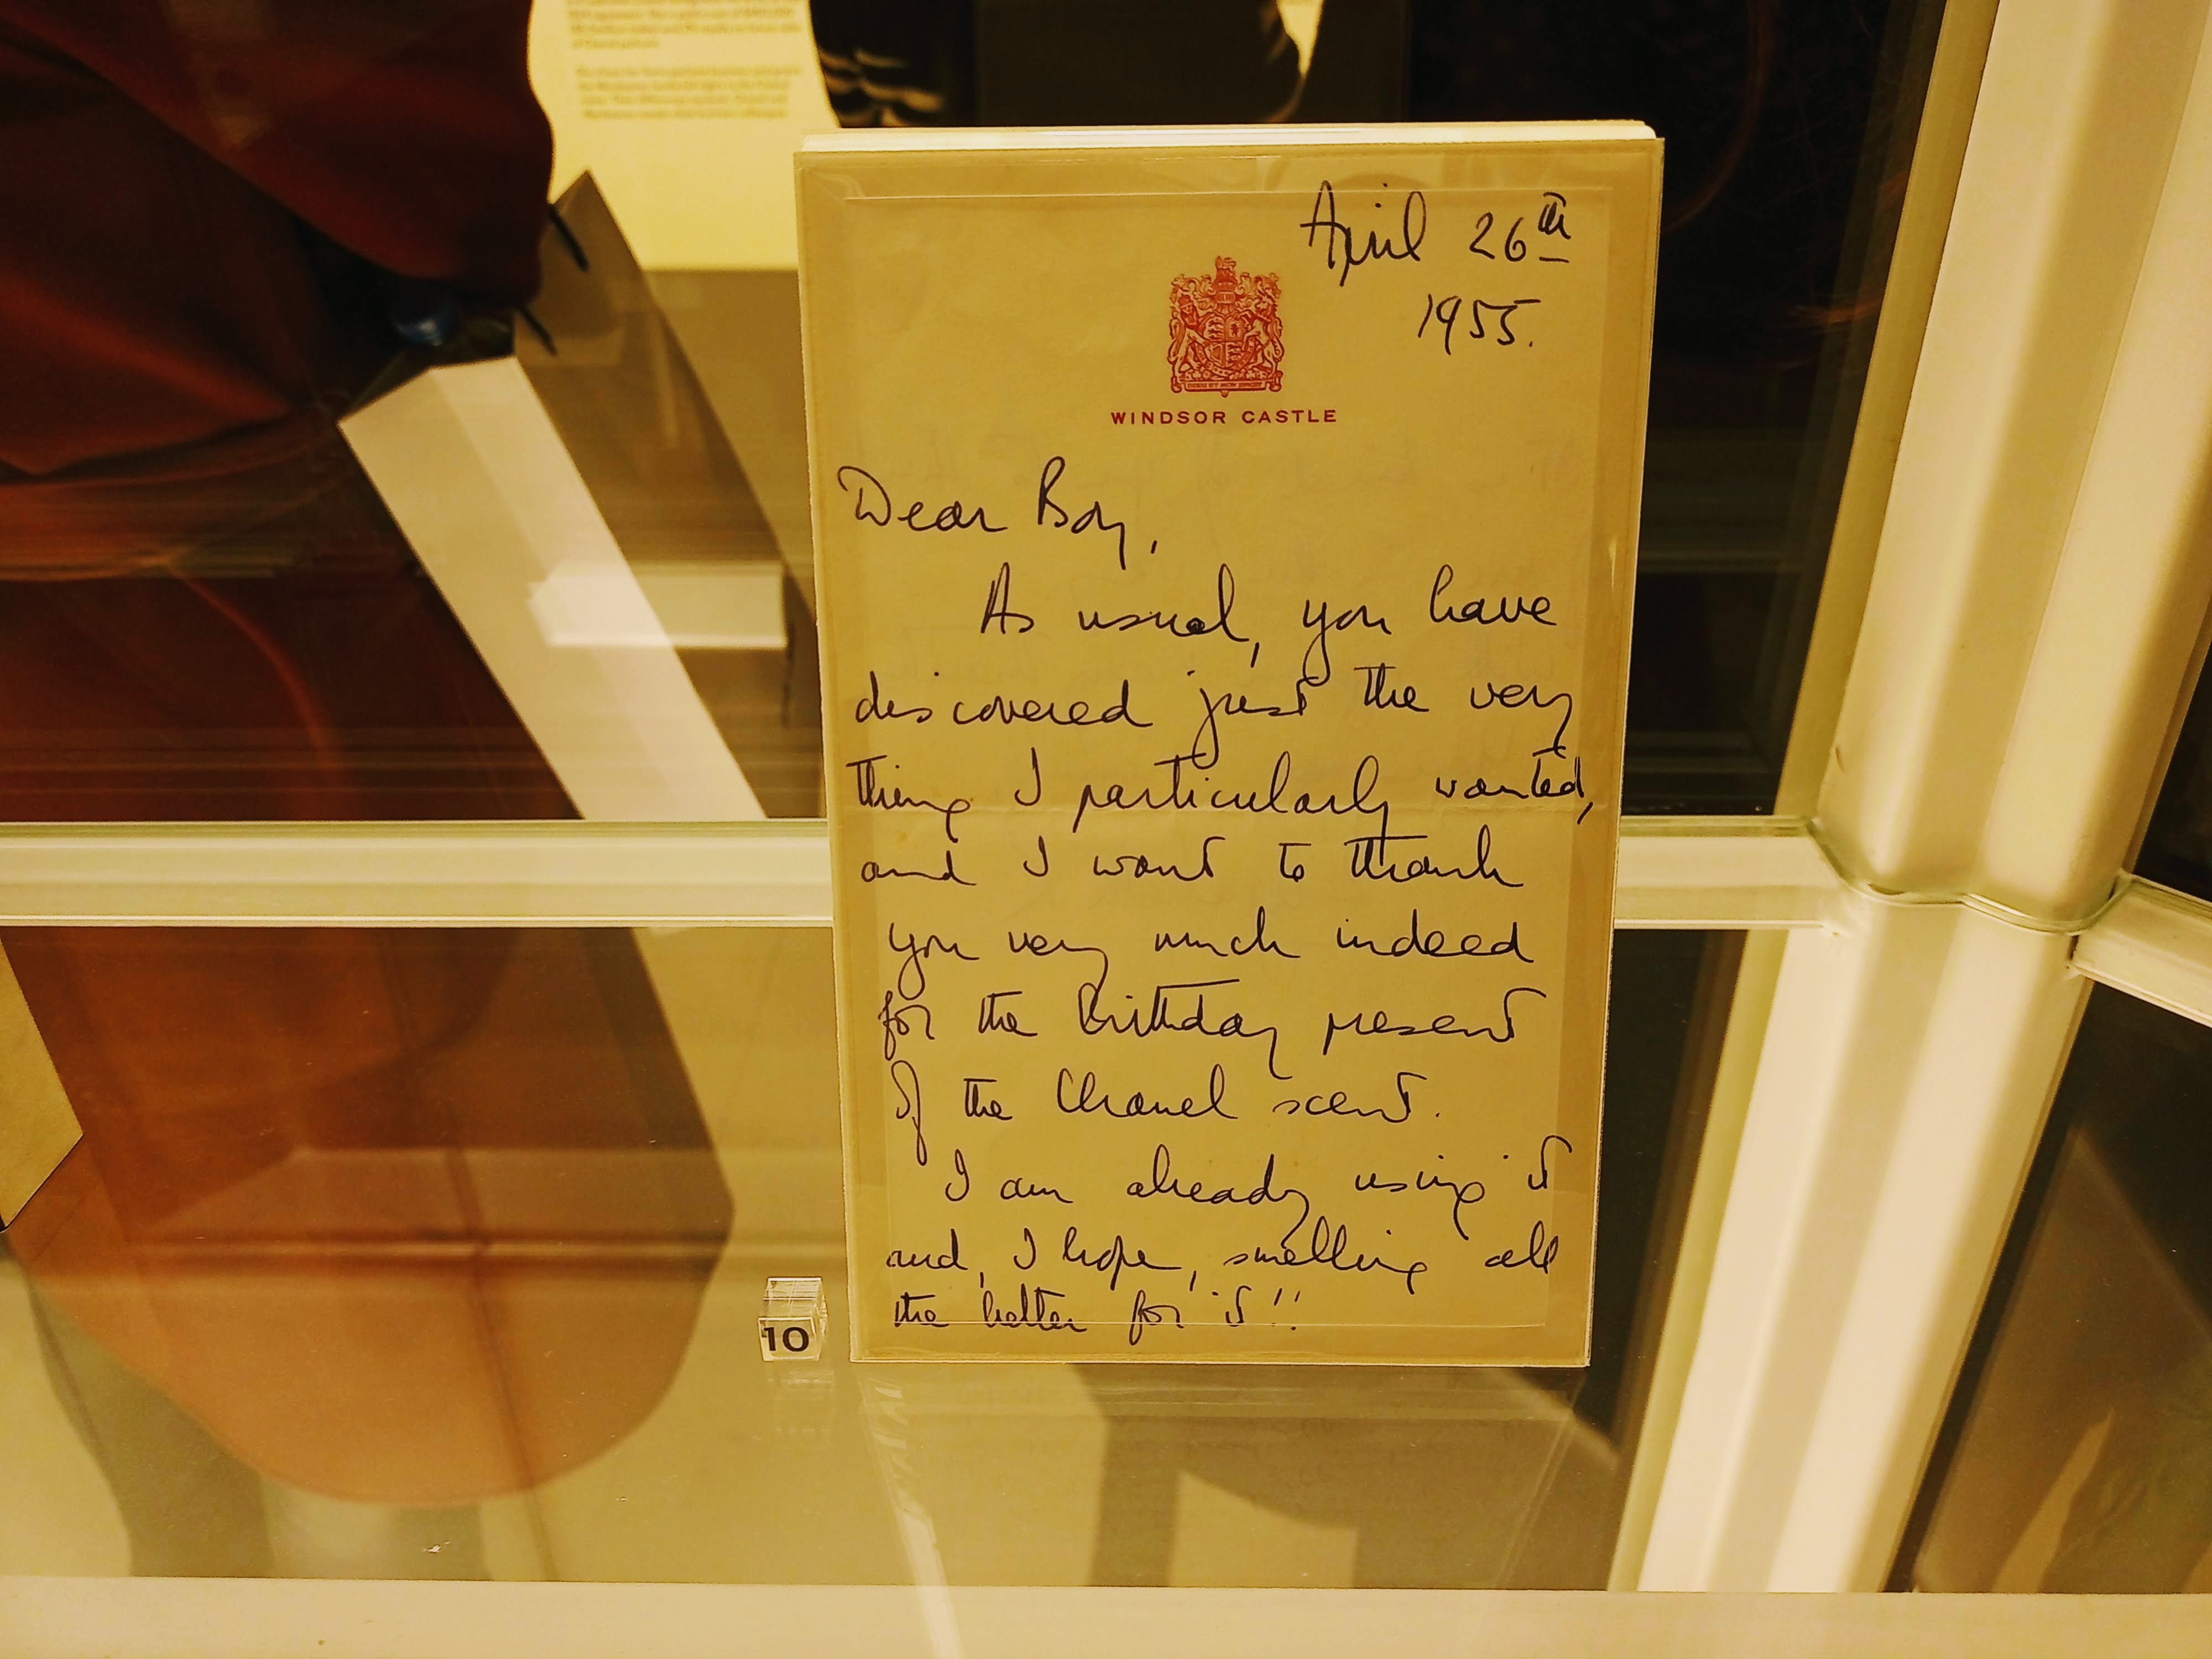 April 26th
1955.
WINDSOR CASTLE
Dear Boy,
As usual, you have
discovered just the very
thing I particularly wanted,
and I want to thank
you very much indeed
for the birthday present
of the Chanel scent.
I am already using it
and, I hope, smelling all
the better for it!!
10